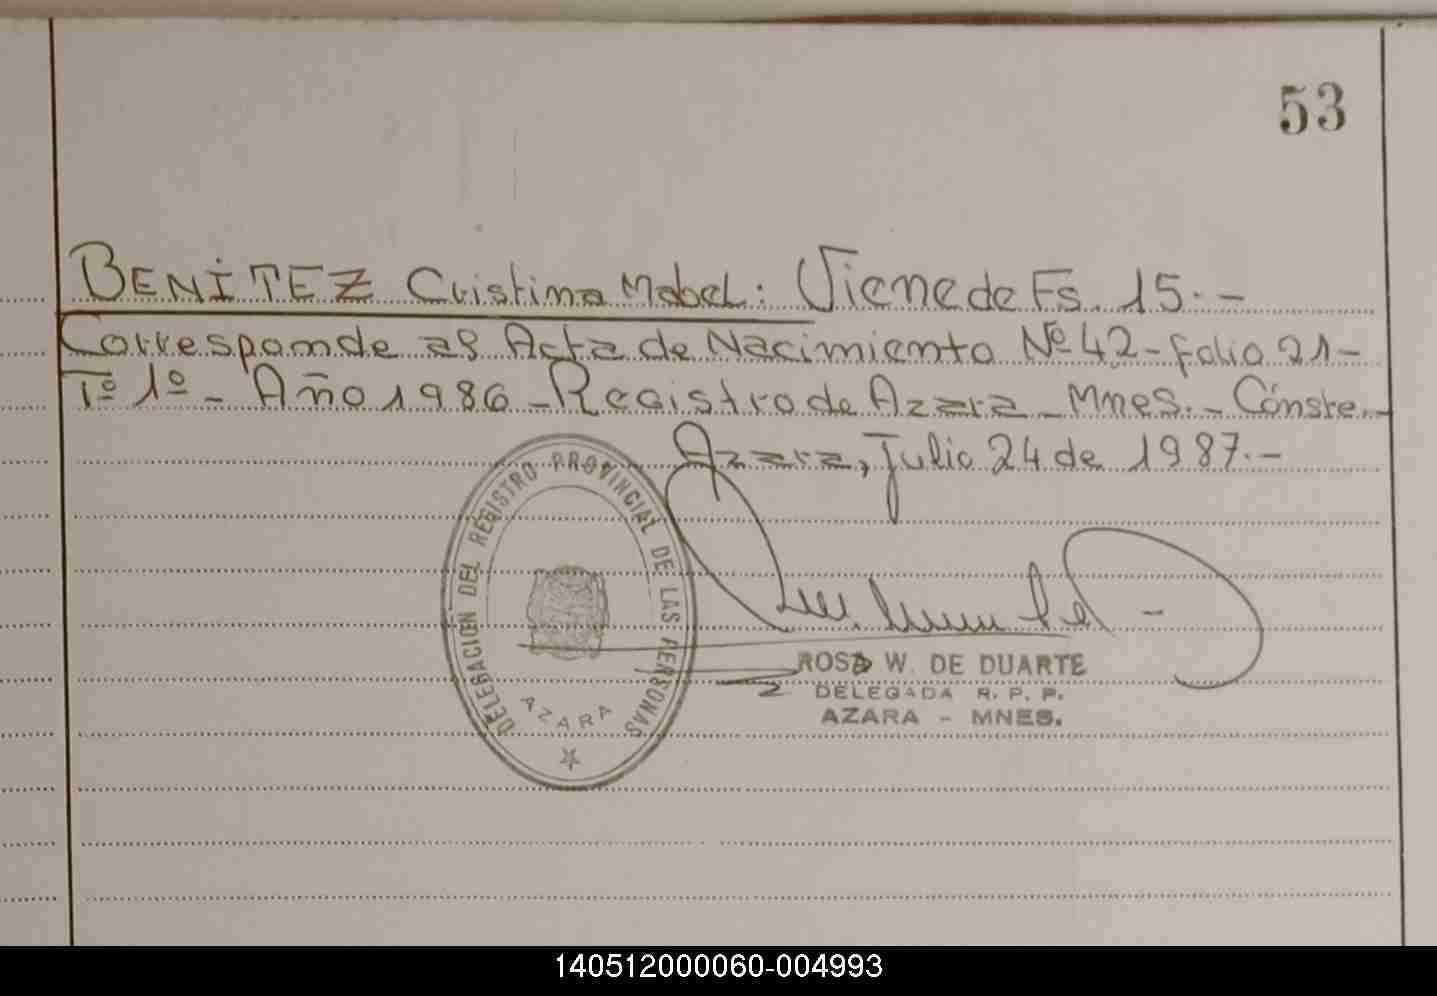 53
BENITEZ Cristina Mabel: Viene de Fs. 15.-
Corresponde al Acta de Nacimiento Nº 42-folio 21-
Tº 1º - Año 1986 - Registro de Azara - Mnes. - Cónste.-
Azara, Julio 24 de 1987.-
DELEGACION DEL REGISTRO PROVINCIAL DE LAS PERSONAS
AZARA
ROSA W. DE DUARTE
DELEGADA R. P. P.
AZARA - MNES.
140512000060-004993